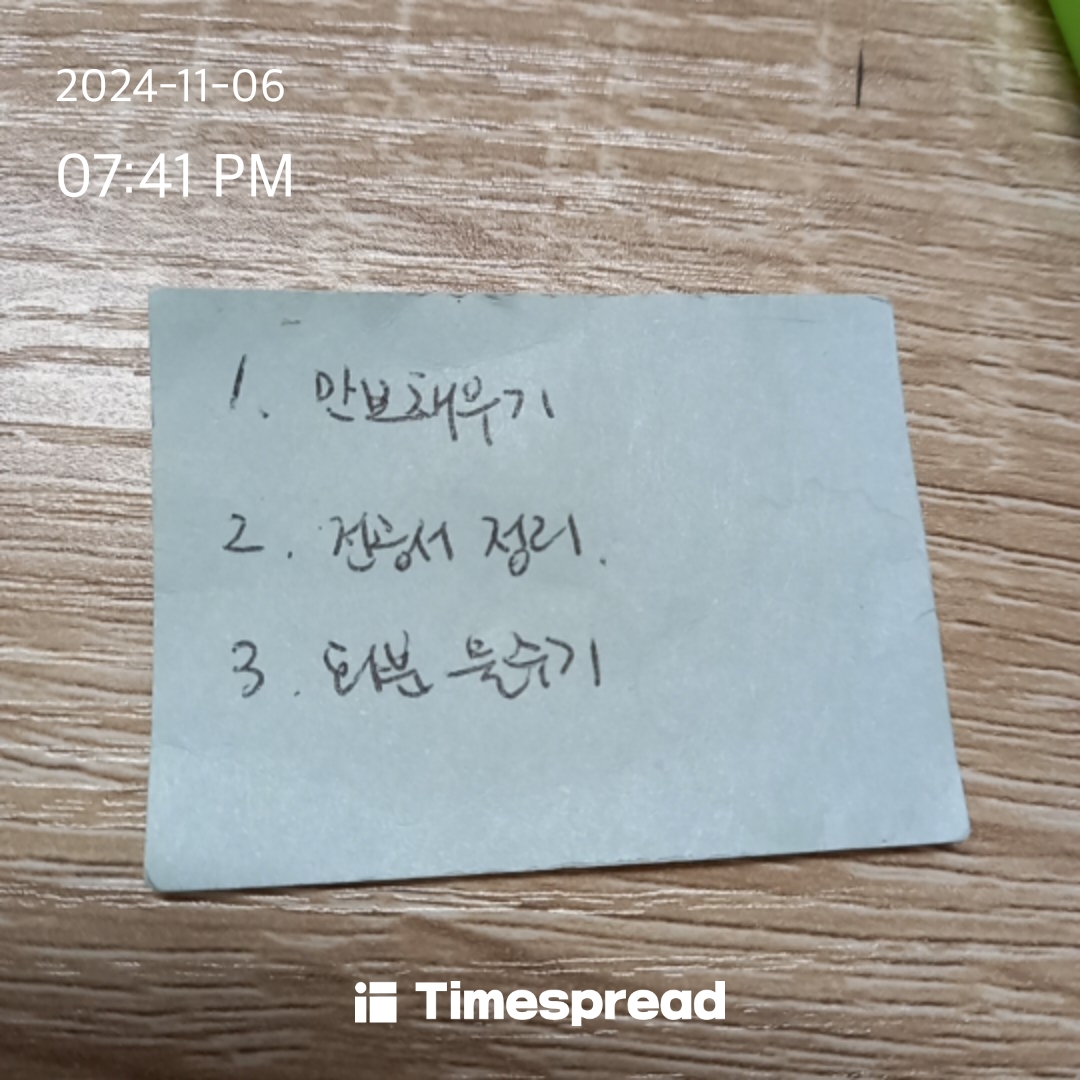 2024-11-06
07:41 PM
1. 만보채우기
2. 전공서 정리.
3. 화분 물주기
Timespread